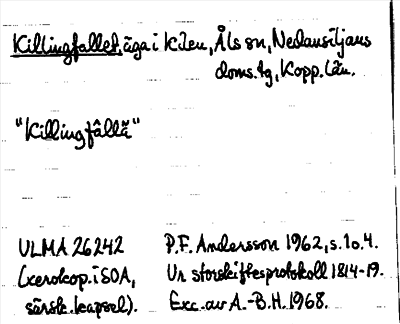 Killingfallet, äga i Kilen, Åls sn, Nedansiljans
doms.tg, Kopp. län.
"Killingfâllä"
ULMA 26242
(xerokop. i SOA,
särsk. kapsel).
P.F. Andersson 1962, s. 1 o. 4.
Ur storskiftesprotokoll 1814-19.
Exc. av A.-B.H. 1968.